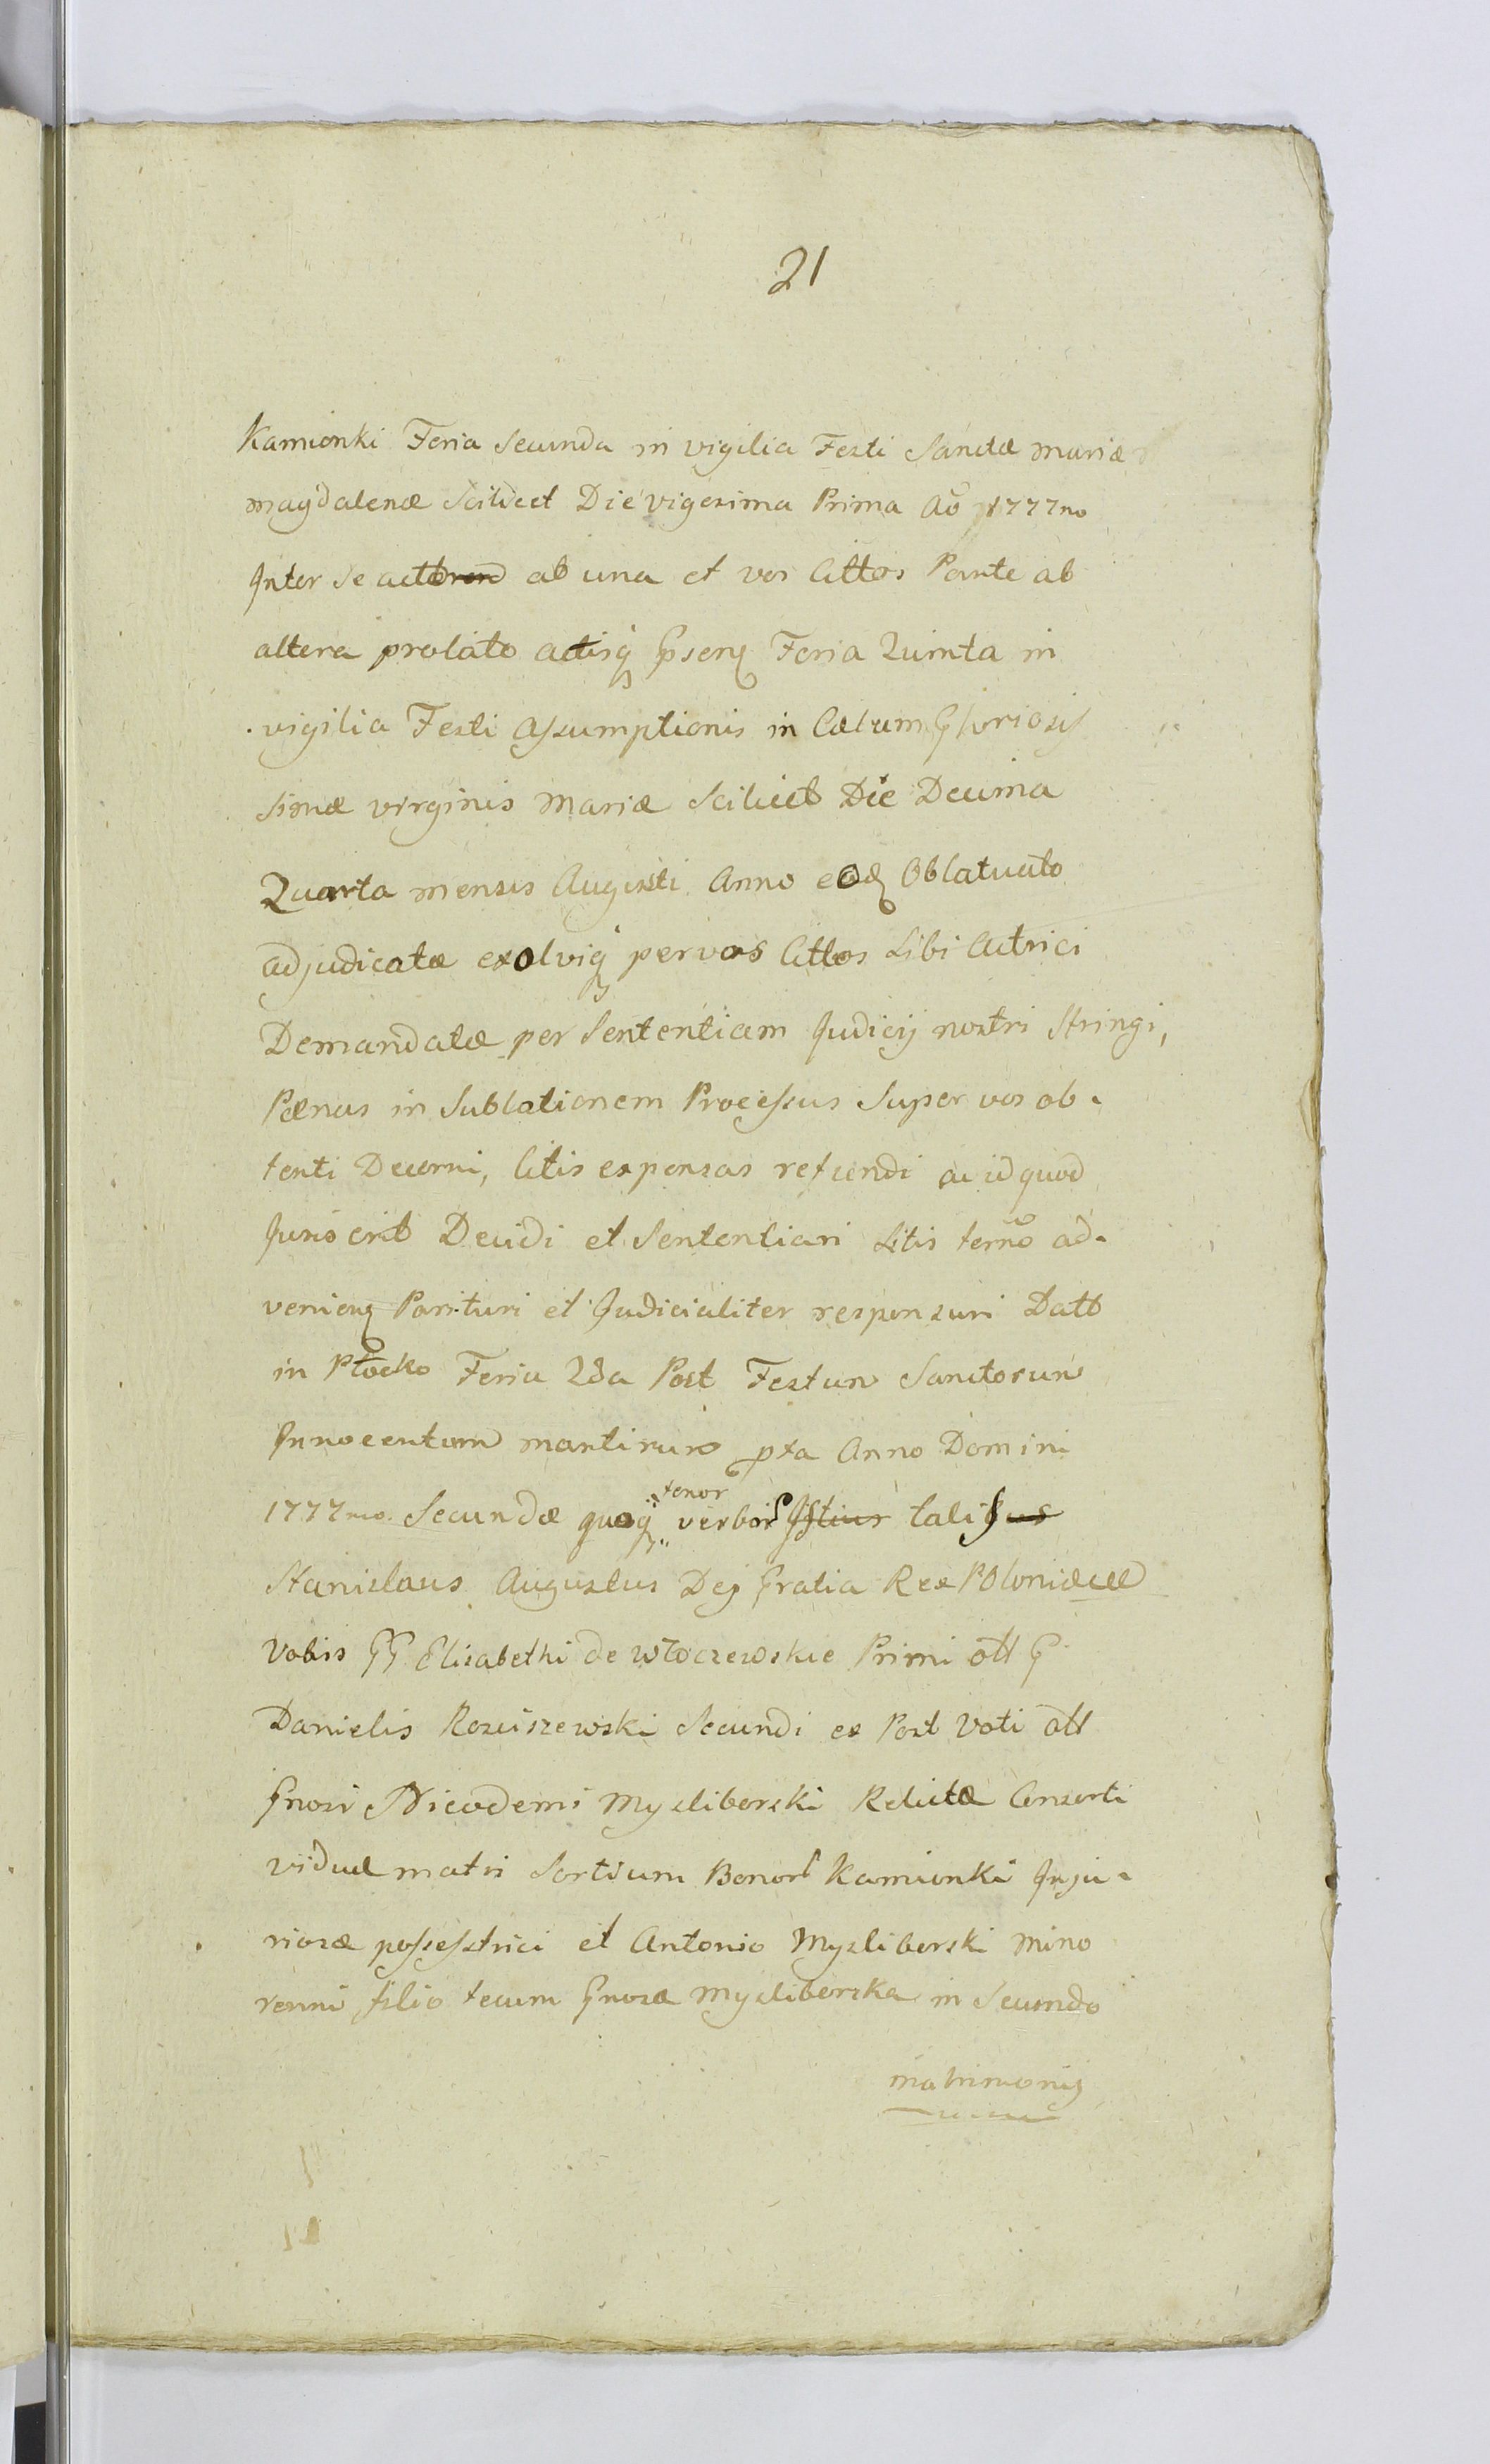 21
Kamionki Feria Secunda in vigilia Festi Sanctæ Mariæ
Magdalenæ Scilicet Die vigesima Prima Aō 1777no
Inter Se ab una et vos Cittos Parte ab
altera prolato actisq Feria Quinta in
vigilia Festi Assumptionis in Cælum Gloriosis
simæ virginis Mariæ Scilicet Die Decima
Quarta mensis Augusti Anno eod Oblatuato
adjudicatæ exolviq per vos Cittos Sibi Actrici
Demandatæ per Sententiam Judicij nostri Stringi,
Pænas in Sublationem Processus Super vos ob-
tenti Decerni, litis expensas refundi ac id quod
Juris erit Decidi et Sententiari Litis termō ad-
venienq Parituri et Judicialiter responsuri Datt
in Płocko Feria 2da Post Festum Sanctorum
Innocentum martirum pxa Anno Domini
1777mo. Secundæ quoq tenor verbor Istius talis
Stanislaus Augustus Dej Gratia Rex Poloniæ
Vobis GG Elisabethi de Włoczewskie Primi ott G
Danielis Rosciszewski Secundi ex Post Voti ott
Gnosi Nicodemi Mysliborski Relictæ Consorti
viduæ matri Sortium Bonor Kamionki Inju-
riosæ possestrici et Antonio Mysliborski Mino
renni filio tecum Gnosa Mysliborska in Secundo
matrimonij